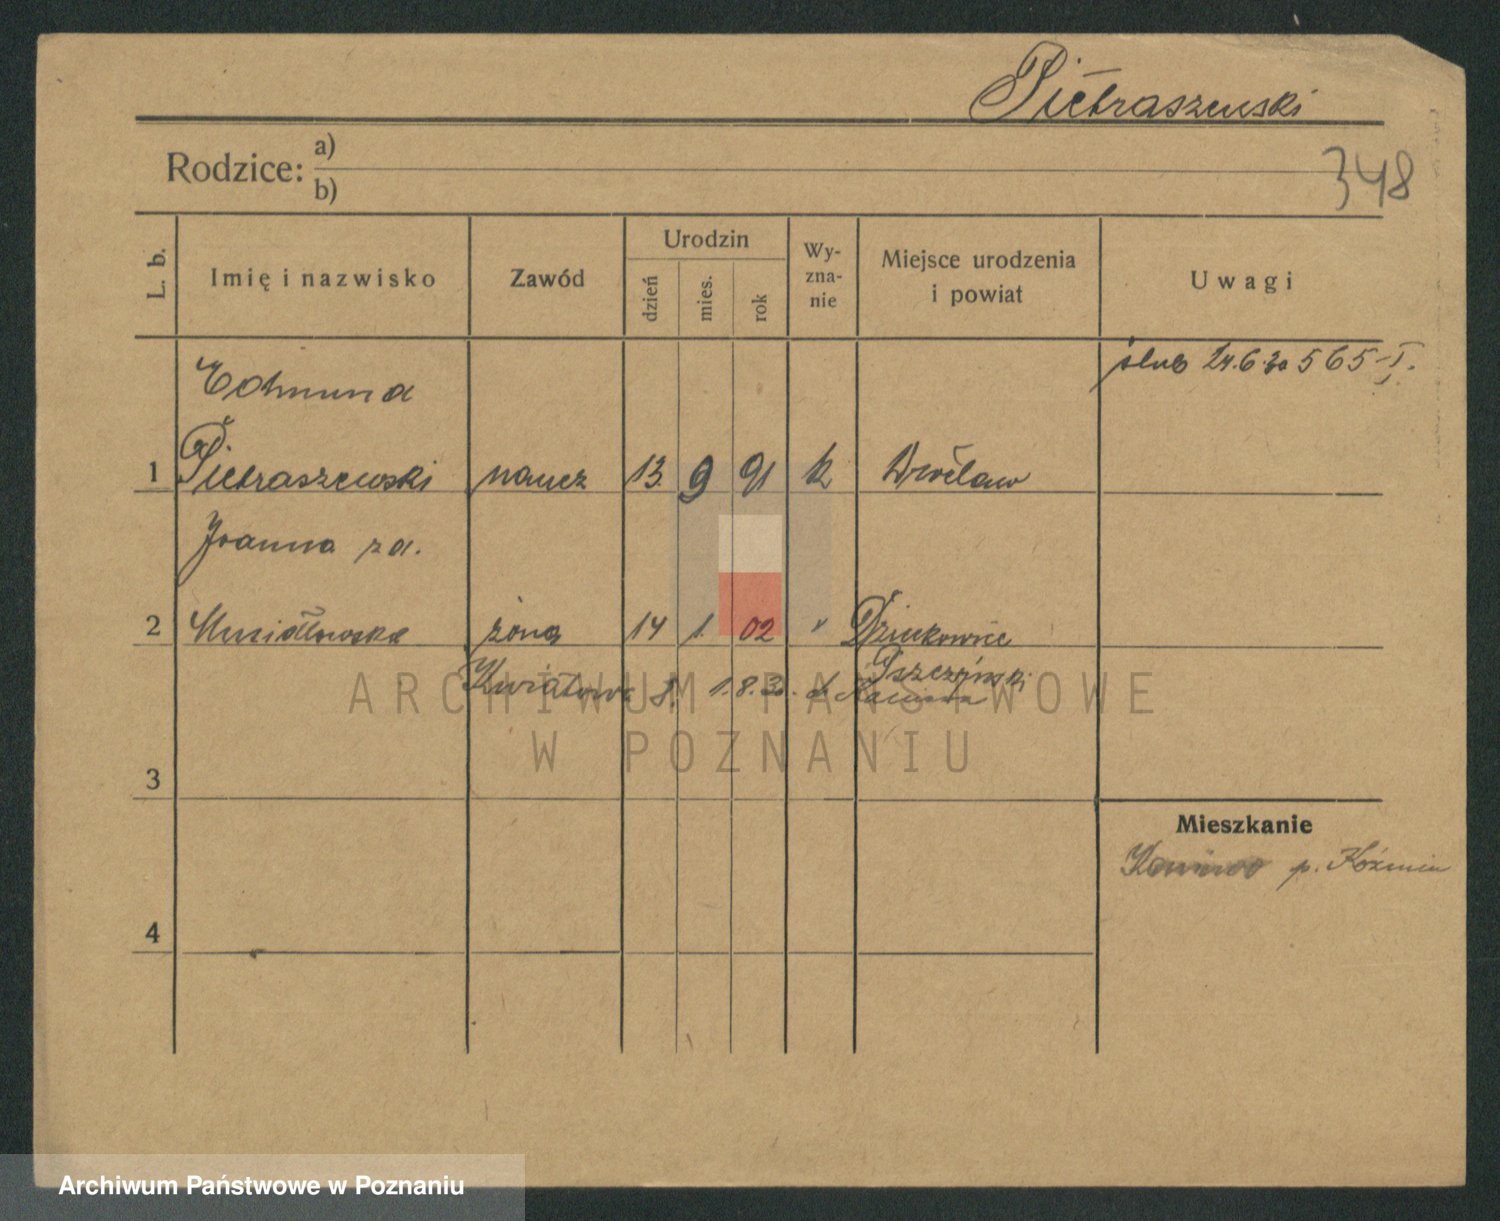 Pietraszewski
Rodzice: a)
b)
348
L. b.
Imię i nazwisko
Zawód
Urodzin
dzień
mies.
rok
Wy-
zna-
nie
Miejsce urodzenia
i powiat
Uwagi
ślub 24.6.30 565-I.
Edmund
1 Pietraszewski naucz 13 9 91 k Wrocław
Joanna za.
2 żona 14 1. 02 " Dziećkowice
Pszczyński
Kwiatowa 8. 1.8.30.
ARCHIWUM PAŃSTWOWE
W POZNANIU
3
Mieszkanie
p. Koźmin
4
Archiwum Państwowe w Poznaniu